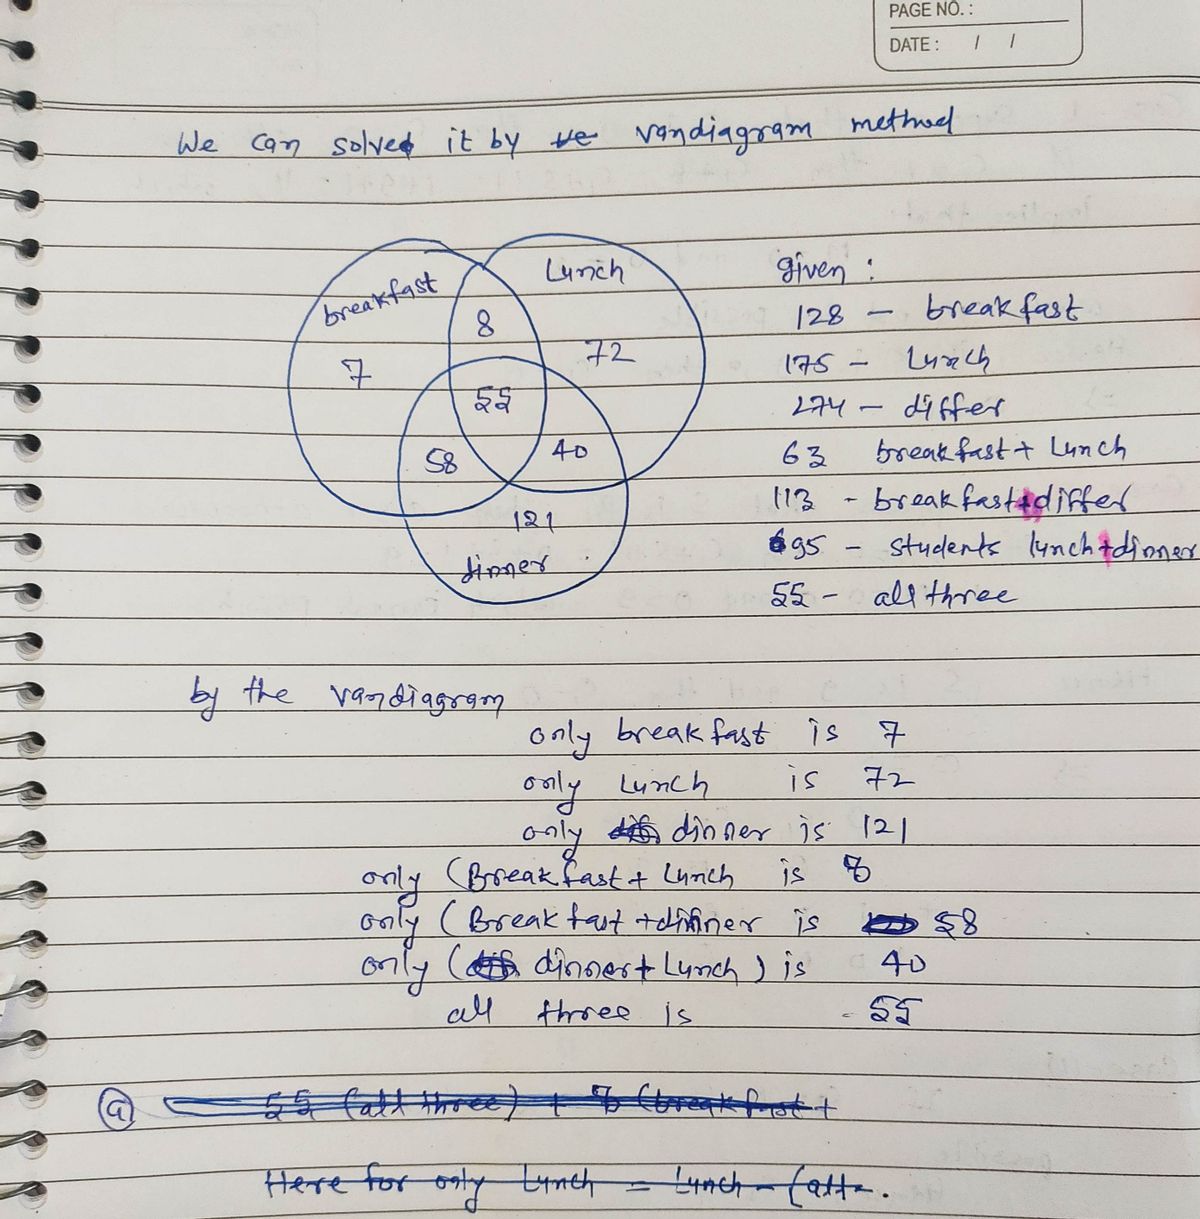 PAGE NO. :
DATE : / /
We can solved it by ve vandiagram method
breakfast
Lunch
8
7
72
55
58
40
121
dinner
given :
128 - breakfast
175 - Lunch
274 - differ
63 breakfast + Lunch
113 - breakfast + differ
695 - students lunch + dinner
55 - all three
by the vandiagram
only breakfast is 7
only Lunch is 72
only dif dinner is 121
only (Breakfast + Lunch is 8
only (Breakfast + dinner is 58
only (dif dinner + Lunch ) is 40
all three is - 55
(a) 55 (all three) + 8 (breakfast +
Here for only Lunch = Lunch - (all